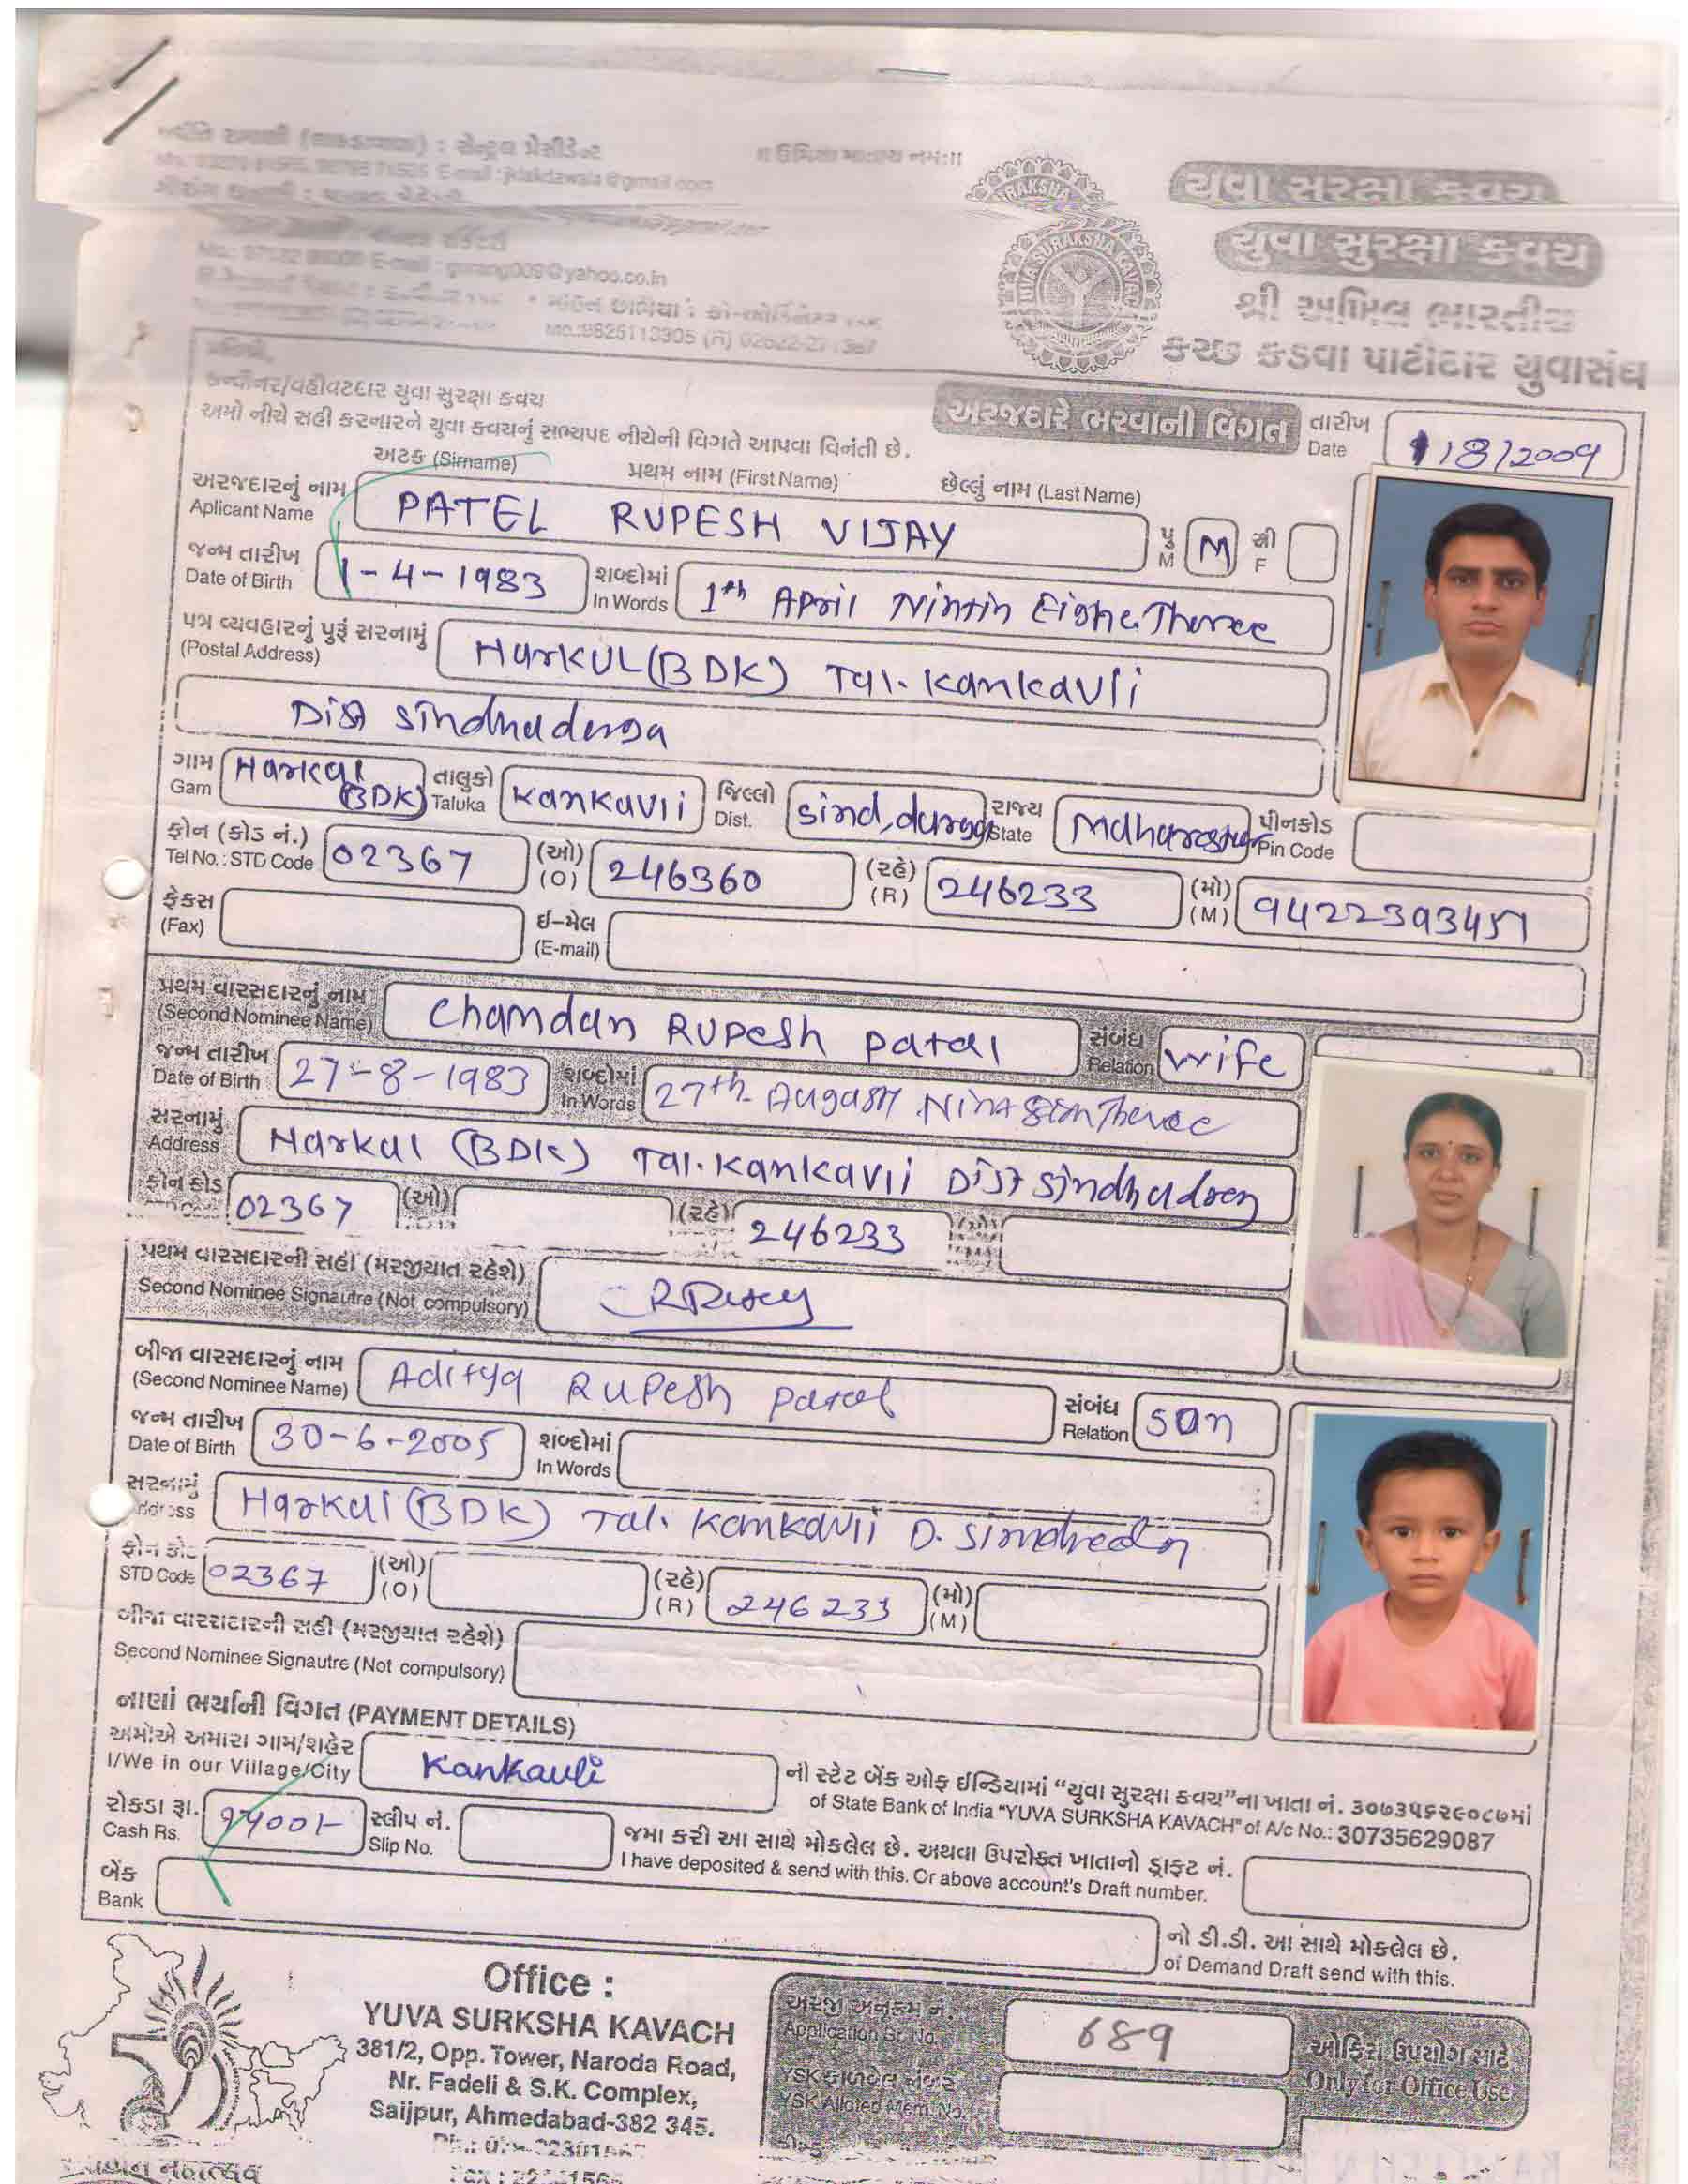 સેન્ટ્રલ પ્રેસીડેન્ટ
E-mail : jklakdawala@gmail.com
E-mail : gurang009@yahoo.co.in
યુવા સુરક્ષા કવચ
YUVA SURAKSHA KAVACH
શ્રી અખિલ ભારતીય
કચ્છ કડવા પાટીદાર યુવાસંઘ
કન્વીનર/વહીવટદાર યુવા સુરક્ષા કવચ
અમો નીચે સહી કરનારને યુવા કવચનું સભ્યપદ નીચેની વિગતે આપવા વિનંતી છે.
અરજદારે ભરવાની વિગત તારીખ
Date 1/8/2009
અટક (Sirname) પ્રથમ નામ (First Name) છેલ્લું નામ (Last Name)
અરજદારનું નામ
Aplicant Name PATEL RUPESH VIJAY પુ M M સ્રી F
જન્મ તારીખ
Date of Birth 1-4-1983 શબ્દોમાં In Words 1th April Nintin Eighe Theree
પત્ર વ્યવહારનું પુરૂં સરનામું
(Postal Address) Harkul (BDK) Tal. Kankavli
Dist Sindhudurga
ગામ Gam Harkul (BDK) તાલુકો Taluka Kankavli જિલ્લો Dist. રાજ્ય State પીનકોડ Pin Code
ફોન (કોડ નં.)
Tel No.: STD Code 02367 (ઓ) (O) 246360 (રહે) (R) 246233 (મો) (M) 9422393451
ફેકસ
(Fax) ઈ-મેલ (E-mail)
પ્રથમ વારસદારનું નામ
(Second Nominee Name) Chamdan Rupesh patal સંબંધ Relation wife
જન્મ તારીખ
Date of Birth 27-8-1983 શબ્દોમાં In Words 27th
સરનામું
Address Harkul (BDK) Tal. Kankavli Dist
ફોન કોડ 02367 (ઓ) (રહે) 246233
પ્રથમ વારસદારની સહી (મરજીયાત રહેશે)
Second Nominee Signautre (Not compulsory)
બીજા વારસદારનું નામ
(Second Nominee Name) Aditya Rupesh patel સંબંધ Relation san
જન્મ તારીખ
Date of Birth 30-6-2005 શબ્દોમાં In Words
સરનામું
Address Harkul (BDK) Tal. Kamkavli D.
ફોન કોડ
STD Code 02367 (ઓ) (O) (રહે) (R) 246233 (મો) (M)
બીજા વારસદારની સહી (મરજીયાત રહેશે)
Second Nominee Signautre (Not compulsory)
નાણાં ભર્યાની વિગત (PAYMENT DETAILS)
અમોએ અમારા ગામ/શહેર
I/We in our Village/City Kankauli ની સ્ટેટ બેંક ઓફ ઈન્ડિયામાં “યુવા સુરક્ષા કવચ”ના ખાતા નં. ૩૦૭૩૫૬૨૯૦૮૭માં
of State Bank of India "YUVA SURKSHA KAVACH" of A/c No.: 30735629087
રોકડા રૂા.
Cash Rs. સ્લીપ નં. Slip No. જમા કરી આ સાથે મોકલેલ છે. અથવા ઉપરોક્ત ખાતાનો ડ્રાફ્ટ નં.
I have deposited & send with this. Or above account's Draft number.
બેંક
Bank નો ડી.ડી. આ સાથે મોકલેલ છે.
of Demand Draft send with this.
Office :
YUVA SURKSHA KAVACH
381/2, Opp. Tower, Naroda Road,
Nr. Fadeli & S.K. Complex,
Saijpur, Ahmedabad-382 345.
અરજી અનુક્રમ નં.
Application Sr. No. 689
YSK Alloted Mem. No.
ઓફિસ ઉપયોગ માટે
Only for Office Use
50